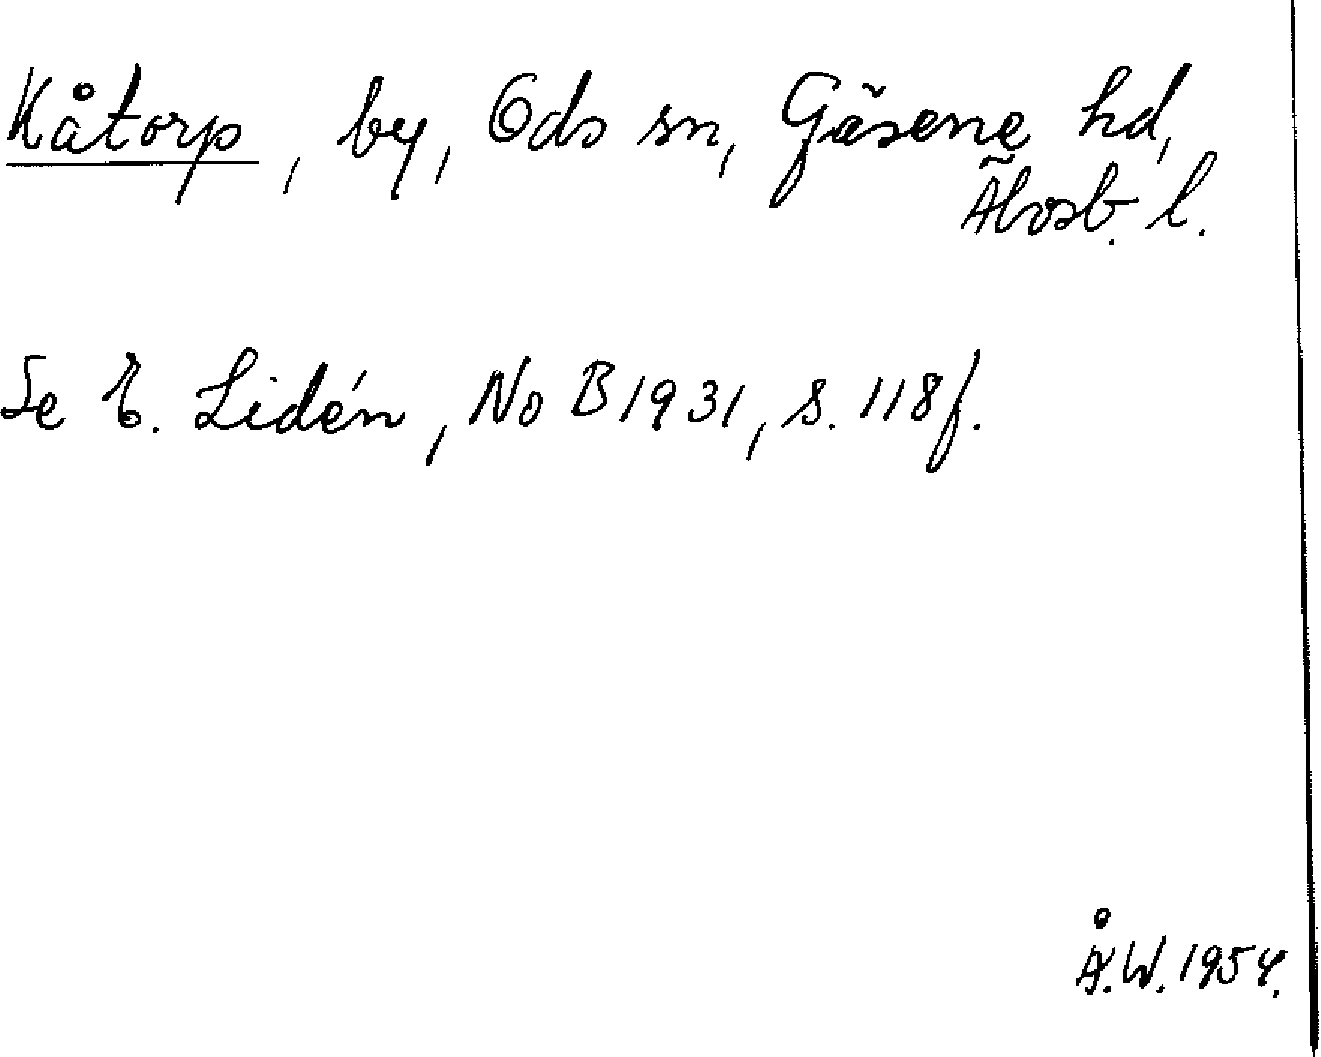 Kåtorp, by, Ods sn, Gäsene hd,
Älvsb. l.
Se E. Lidén, NoB 1931, s. 118f.
Å.W. 1954.